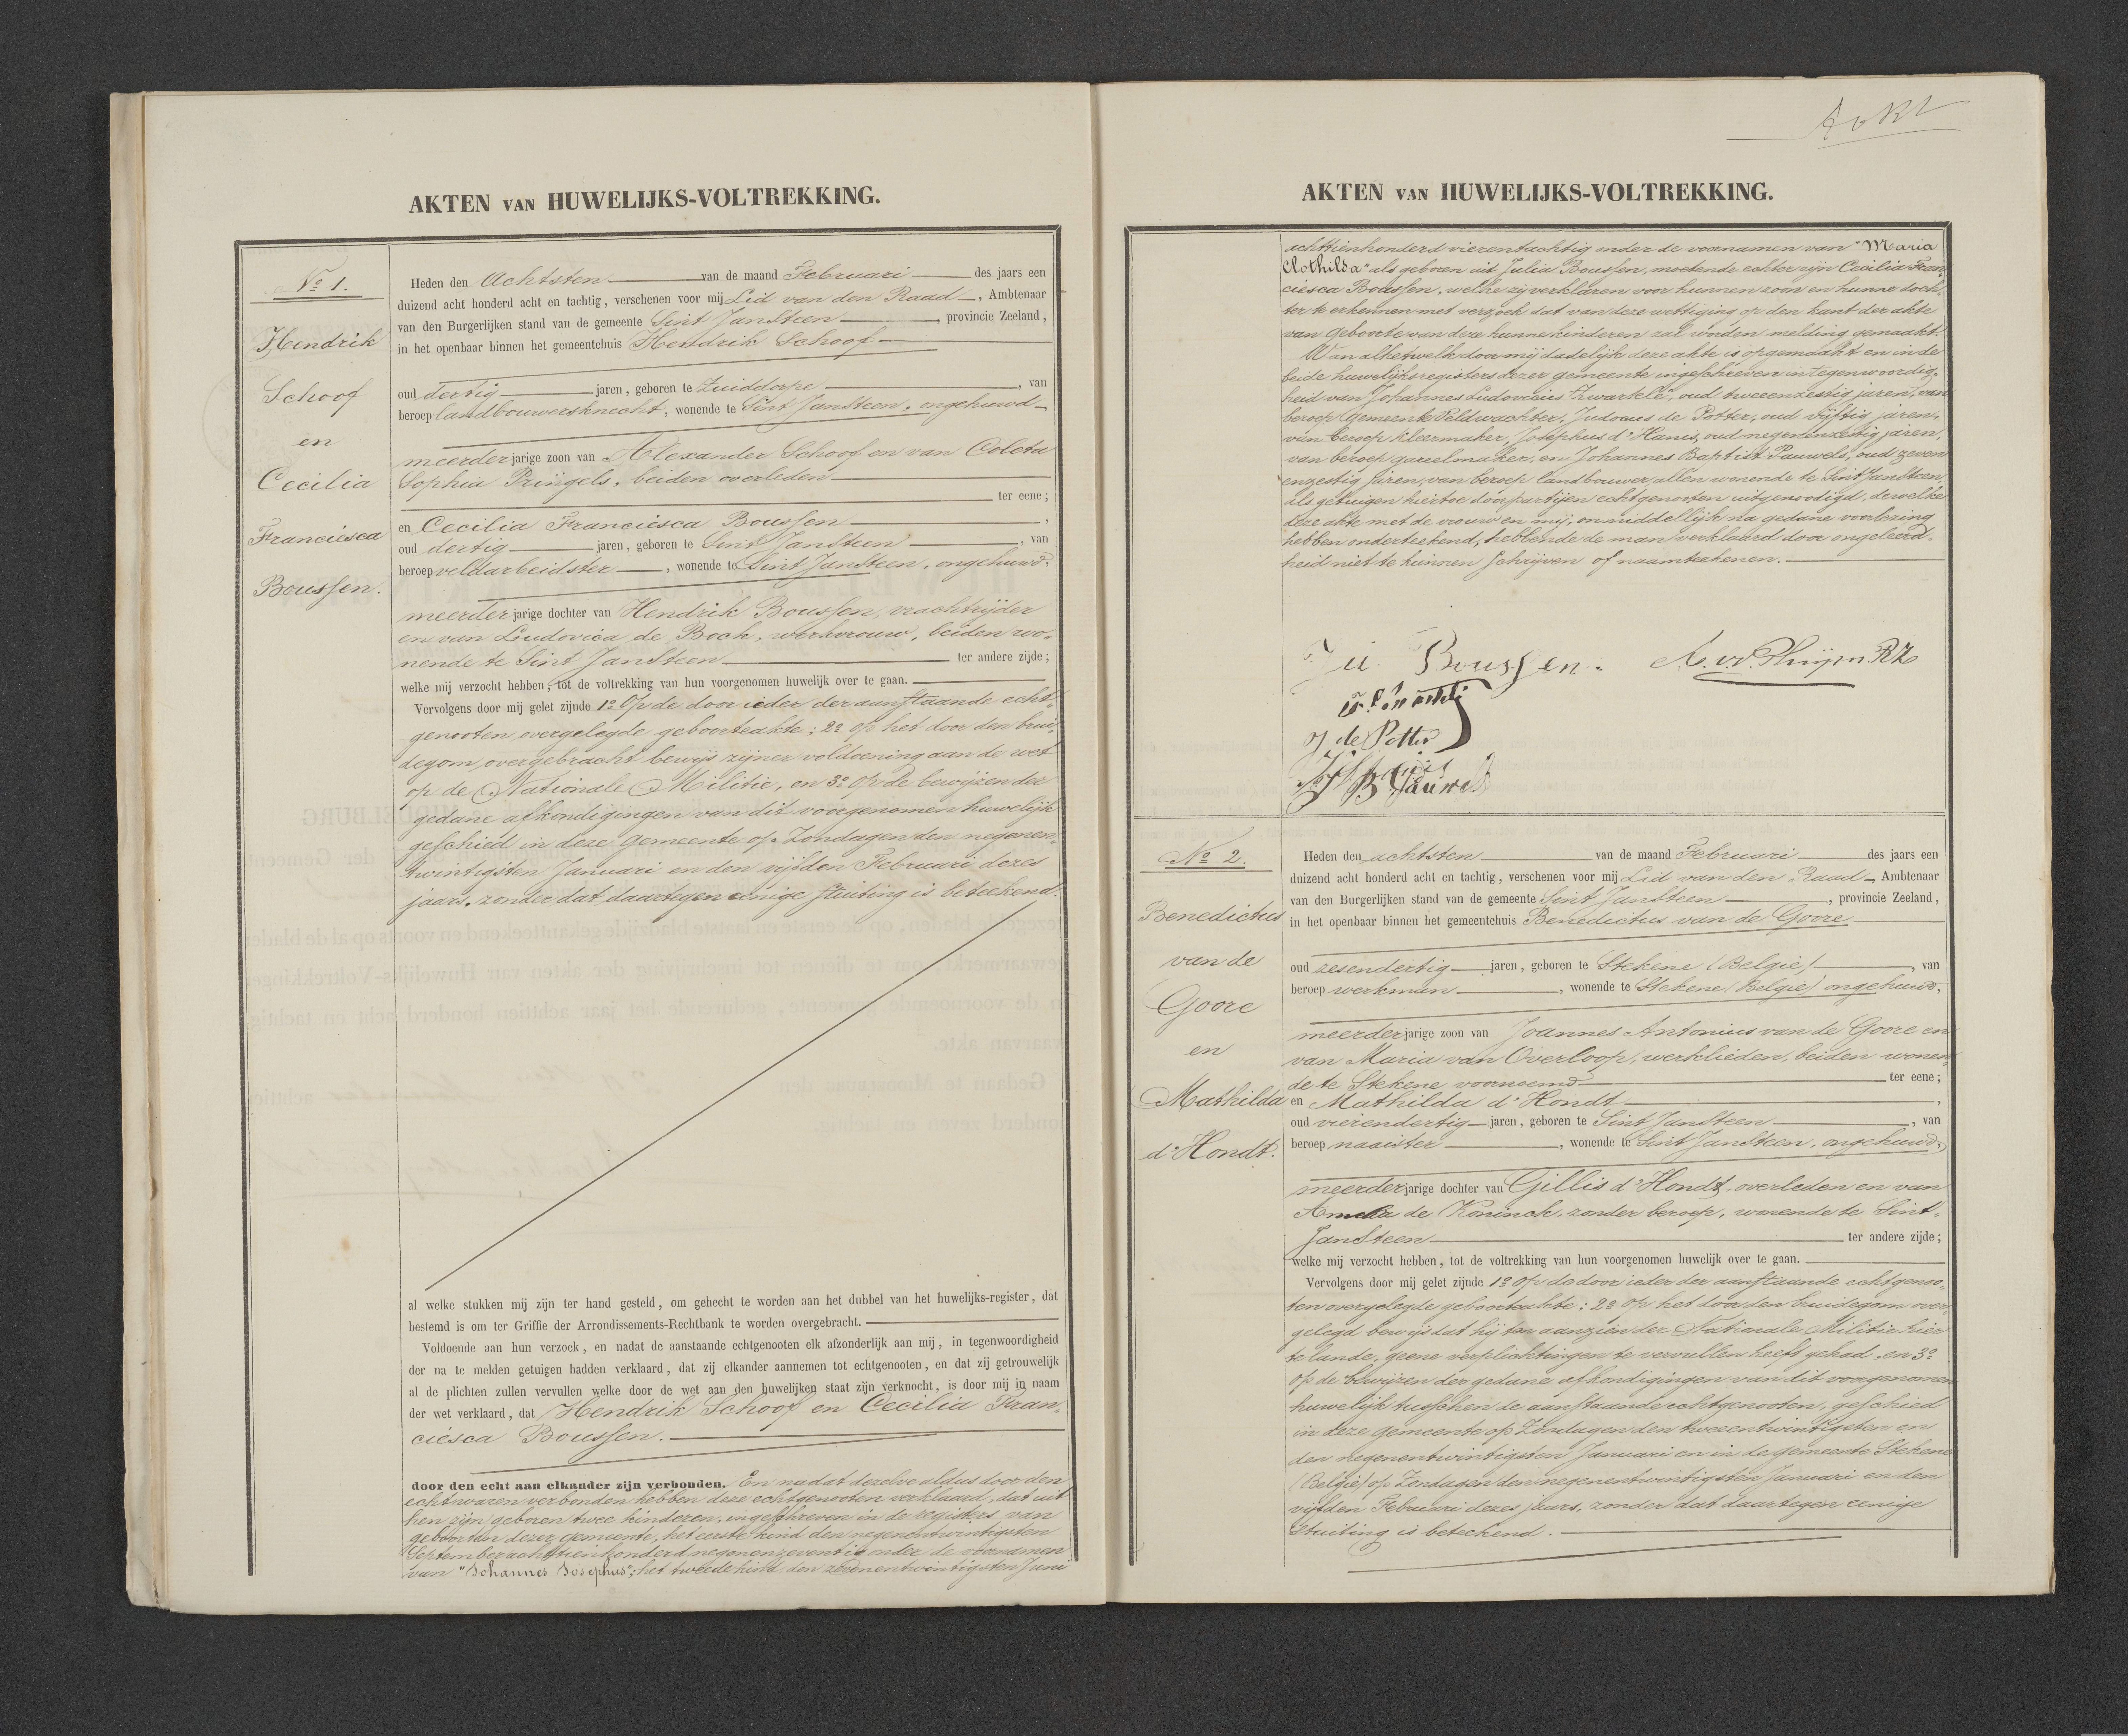 AKTEN VAN HUWELIJKS-VOLTREKKING.
No 1.
Hendrik
Schoof
en
Cecilia
Franciesca
Boussen.
Heden den Achtsten van de maand Februari des jaars een
duizend acht honderd acht en tachtig, verschenen voor mij Lid van den Raad, Ambtenaar
van den Burgerlijken stand van de gemeente Sint Jansteen, provincie Zeeland,
in het openbaar binnen het gemeentehuis Hendrik Schoof
oud dertig jaren, geboren te Zuiddorpe, van
beroep landbouwersknecht, wonende te Sint Jansteen, ongehuwd
meerder jarige zoon van Alexander Schoof en van Coleta
Sophia Pringels, beiden overleden
ter eene;
en Cecilia Franciesca Boussen,
oud dertig jaren, geboren te Sint Jansteen, van
beroep veldarbeidster, wonende te Sint Jansteen, ongehuwd,
meerder jarige dochter van Hendrik Boussen, vrachtrijder
en van Ludovica de Bock, werkvrouw, beiden wo-
nende te Sint Jansteen ter andere zijde;
welke mij verzocht hebben, tot de voltrekking van hun voorgenomen huwelijk over te gaan.
Vervolgens door mij gelet zijnde 1o Op de door ieder der aanstaande echt-
genooten overgelegde geboorteakte; 2o op het door den brui-
degom overgebracht bewijs zijner voldoening aan de wet
op de Nationale Militie, en 3o op de bewijzen der
gedane afkondigingen van dit voorgenomen huwelijk
geschied in deze gemeente op Zondagen den negenen-
twintigsten Januari en den vijfden Februari dezes
jaars, zonder dat daartegen eenige stuiting is beteekend.
al welke stukken mij zijn ter hand gesteld, om gehecht te worden aan het dubbel van het huwelijks-register, dat
bestemd is om ter Griffie der Arrondissements-Rechtbank te worden overgebracht.
Voldoende aan hun verzoek, en nadat de aanstaande echtgenooten elk afzonderlijk aan mij, in tegenwoordigheid
der na te melden getuigen hadden verklaard, dat zij elkander aannemen tot echtgenooten, en dat zij getrouwelijk
al de plichten zullen vervullen welke door de wet aan den huwelijken staat zijn verknocht, is door mij in naam
der wet verklaard, dat Hendrik Schoof en Cecilia Fran-
ciesca Boussen.
door den echt aan elkander zijn verbonden. En nadat dezelve aldus door den
echt waren verbonden hebben deze echtgenooten verklaard, dat uit
hen zijn geboren twee kinderen, ingeschreven in de registers van
geboorten dezer gemeente, het eerste kind den negenentwintigsten
September achttienhonderd negenenzeventig onder de voornamen
van "Johannes Josephus"; het tweede kind den zevenentwintigsten Juni
AKTEN VAN HUWELIJKS-VOLTREKKING.
achttienhonderd vierentachtig onder de voornamen van "Maria
Clothilda" als geboren uit Julia Boussen, moetende echter zijn Cecilia Fran-
ciesca Boussen, welke zij verklaren voor hunnen zoon en hunne doch-
ter te erkennen met verzoek dat van deze wettiging op den kant der akte
van geboorte van deze hunne kinderen zal worden melding gemaakt.
Van al hetwelk door mij dadelijk deze akte is opgemaakt en in de
beide huwelijksregisters dezer gemeente ingeschreven in tegenwoordig-
heid van Johannes Ludovicus Zwartelé, oud tweeenzestig jaren, van
beroep Gemeente Veldwachter, Judocus de Potter, oud vijftig jaren,
van beroep kleermaker, Josephus d'Hanis, oud negenenzestig jaren,
van beroep gareelmaker, en Johannes Baptist Pauwels, oud zeven
enzestig jaren, van beroep landbouwer, allen wonende te Sint Jansteen,
als getuigen hiertoe door partijen echtgenooten uitgenoodigd, dewelke
deze akte met de vrouw en mij, onmiddellijk na gedane voorlezing
hebben onderteekend, hebbende de man verklaard door ongeleerd-
heid niet te kunnen schrijven of naamteekenen.
Boussen.
de Potter
B Pauwels
No 2.
Benedictus
van de
Goore
en
Mathilda
d'Hondt.
Heden den achtsten van de maand Februari des jaars een
duizend acht honderd acht en tachtig, verschenen voor mij Lid van den Raad, Ambtenaar
van den Burgerlijken stand van de gemeente Sint Jansteen, provincie Zeeland,
in het openbaar binnen het gemeentehuis Benedictus van de Goore
oud zesendertig jaren, geboren te Stekene (Belgie), van
beroep werkman, wonende te Stekene (Belgie) ongehuwd,
meerder jarige zoon van Joannes Antonius van de Goore en
van Maria van Overloop, werklieden, beiden wonen
de te Stekene voornoemd ter eene;
en Mathilda d'Hondt,
oud vierendertig jaren, geboren te Sint Jansteen, van
beroep naaister, wonende te Sint Jansteen, ongehuwd,
meerder jarige dochter van Gillis d'Hondt, overleden en van
de Koninck, zonder beroep, wonende te Sint-
Jansteen ter andere zijde;
welke mij verzocht hebben, tot de voltrekking van hun voorgenomen huwelijk over te gaan.
Vervolgens door mij gelet zijnde 1o Op de door ieder der aanstaande echtgenoo-
ten overgelegde geboorteakte; 2o Op het door den bruidegom over-
gelegd bewijs dat hij ten aanzien der Nationale Militie hier
te lande, geene verplichtingen te vervullen heeft gehad, en 3o
op de bewijzen der gedane afkondigingen van dit voorgenomen
huwelijk tusschen de aanstaande echtgenooten, geschied
in deze gemeente op Zondagen den tweeentwintigsten en
den negenentwintigsten Januari en in de gemeente Stekene
(Belgie) op Zondagen den negenentwintigsten Januari en den
vijfden Februari dezes jaars, zonder dat daartegen eenige
stuiting is beteekend.